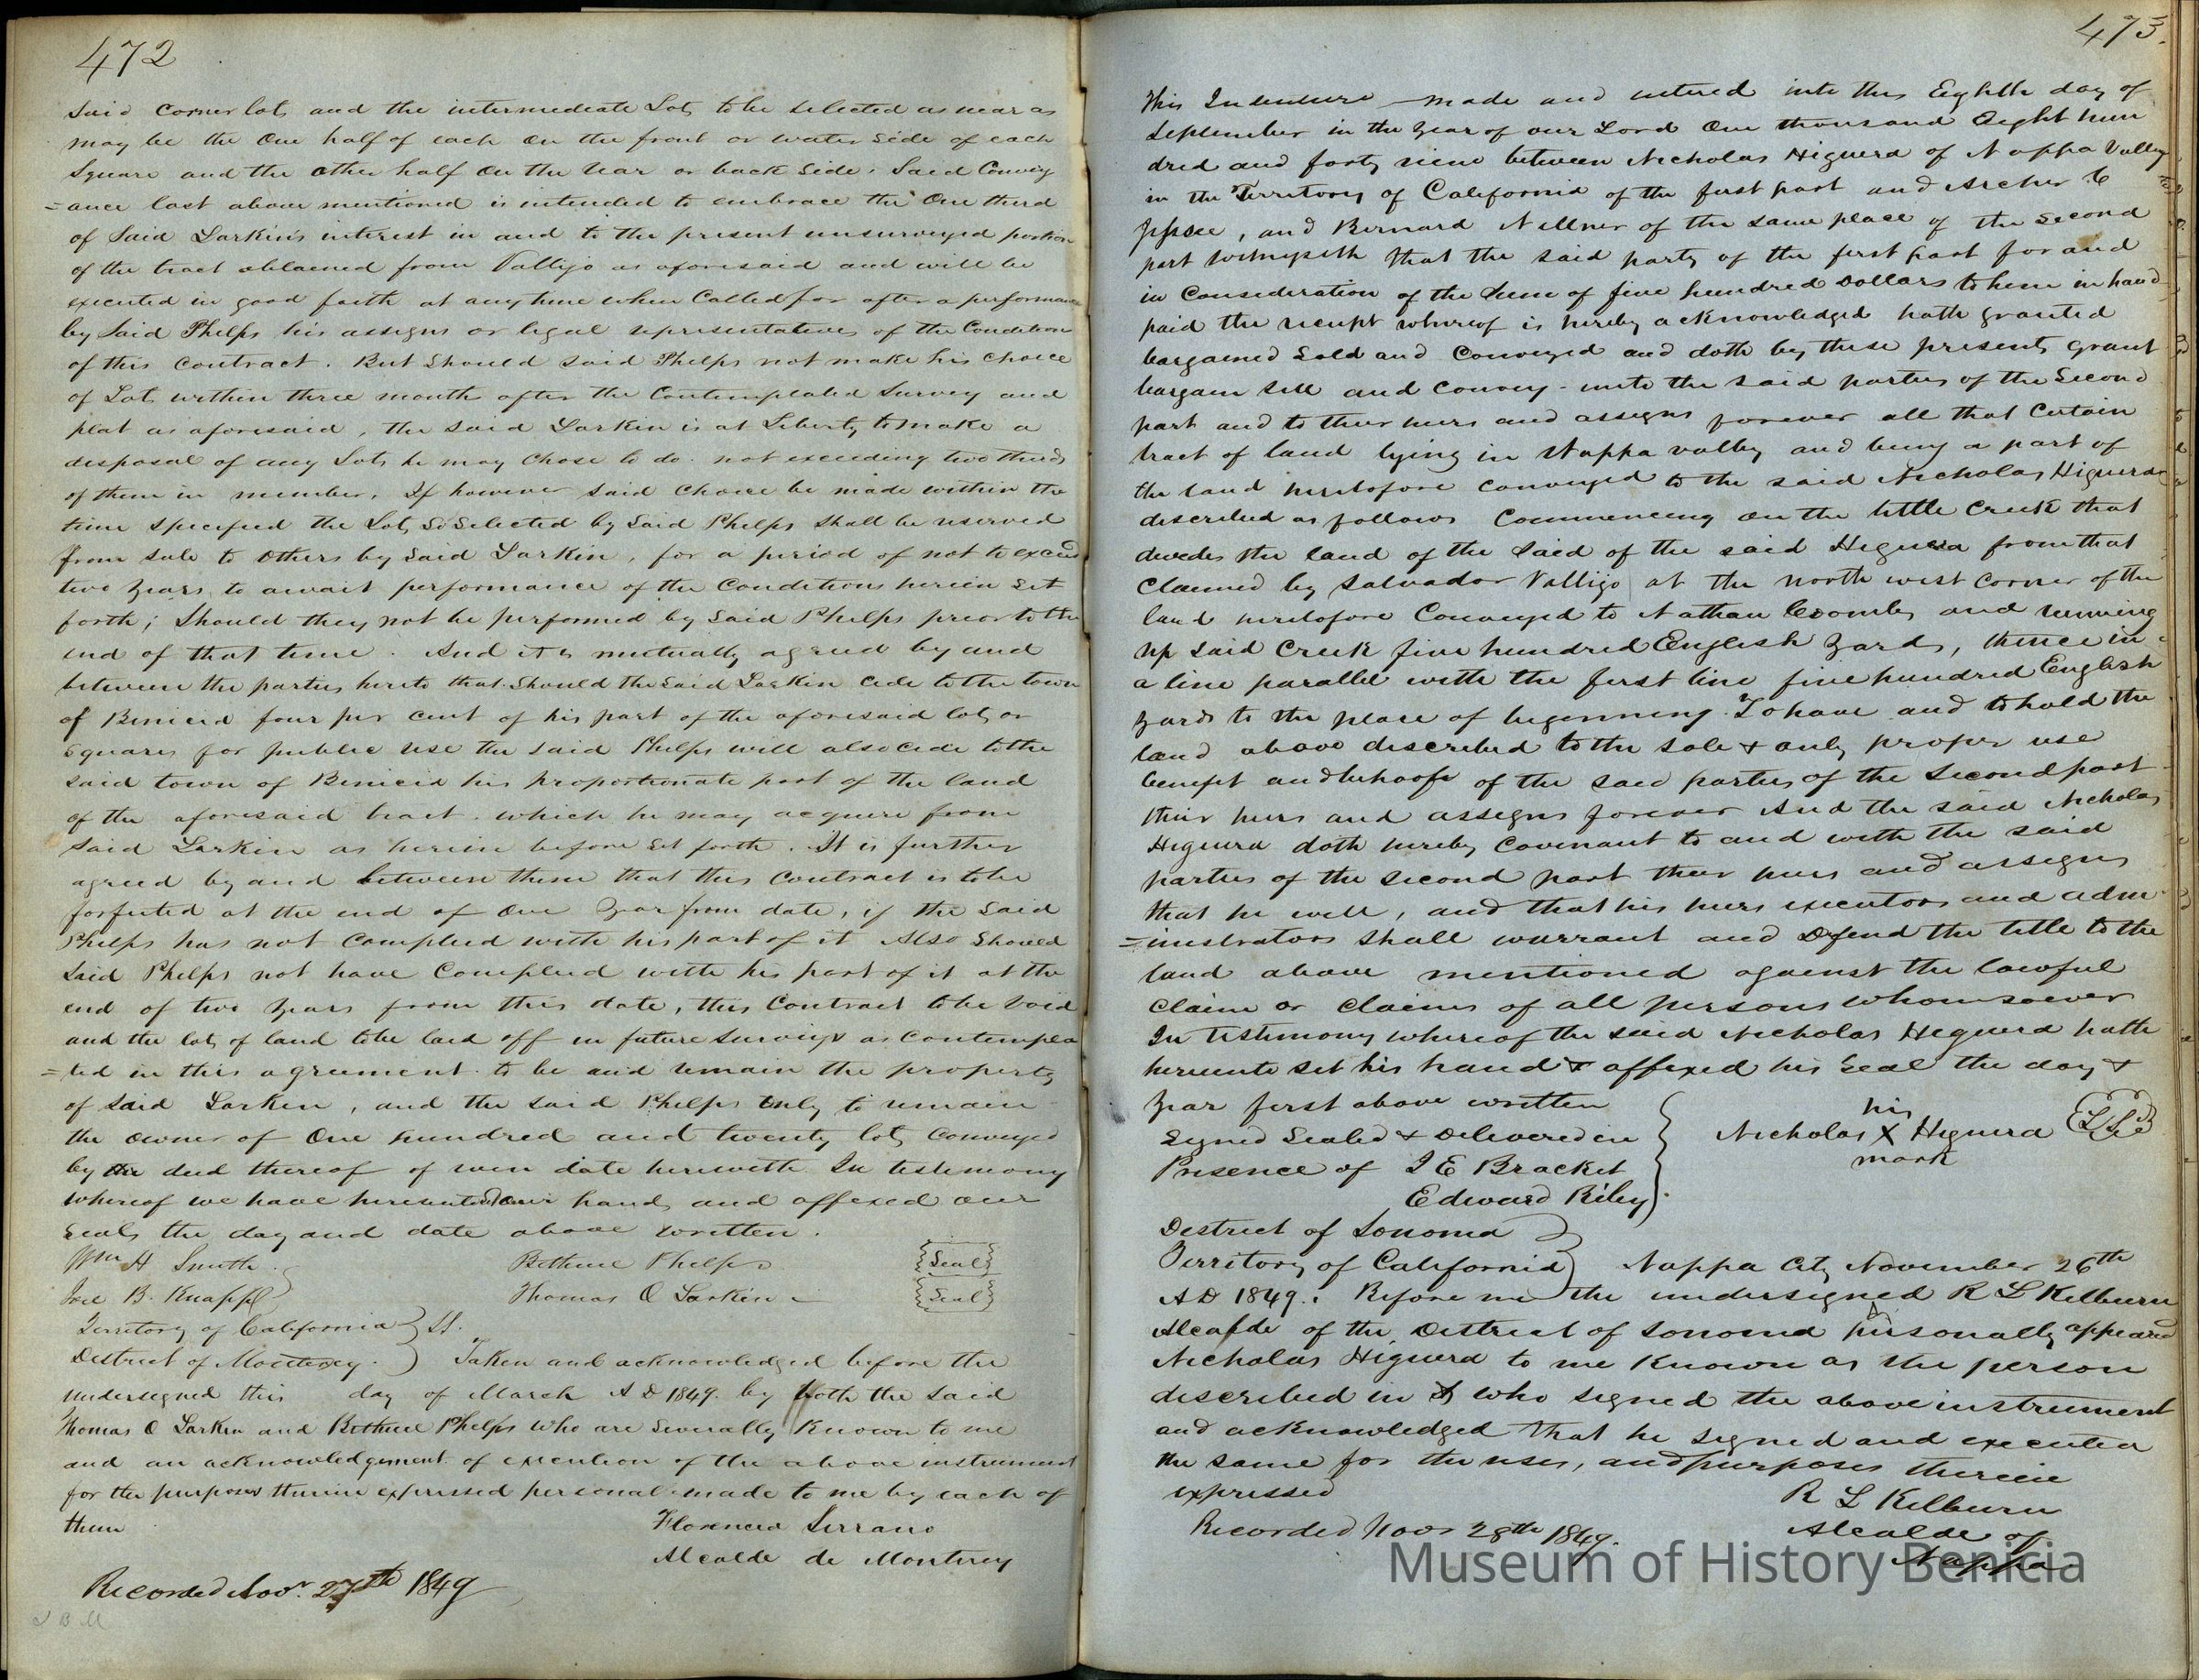 472
Said Corner lots and the intermediate Lots to be selected as near as
may be the One half of each on the front or water side of each
Square and the other half on the rear or back side. Said Convey
=ance last above mentioned is intended to embrace the One third
of Said Larkin's interest in and to the present unsurveyed portion
of the tract obtained from Vallijo as aforesaid and will be
executed in good faith at any time when Called for after a performance
by Said Phelps his assigns or legal representatives of the Condition
of this Contract. But Should Said Phelps not make his choice
of Lots within three month after the Contemplated Survey and
plat as aforesaid, the Said Larkin is at Liberty to make a
disposal of any Lots he may Chose to do. not exceeding two thirds
of them in number. If however Said Choice be made within the
time specified the Lots So Selected by Said Phelps Shall be reserved
from sale to Others by Said Larkin, for a period of not to exceed
two years, to await performance of the Conditions herein Set
forth; Should they not be performed by Said Phelps prior to the
end of that time. And it is mutually agreed by and
between the parties hereto that Should the Said Larkin Cede to the town
of Benicia four per cent of his part of the aforesaid lots or
Squares for public use the Said Phelps will also Cede to the
Said town of Benicia his proportionate part of the land
of the aforesaid tract. which he may acquire from
Said Larkin as herein before Set forth. It is further
agreed by and between them that this Contract is to be
forfeited at the end of One Year from date, if the Said
Phelps has not Complied with his part of it Also Should
Said Phelps not have Complied with his part of it at the
end of two Years from this date, this Contract to be Void
and the lots of land to be laid off in future Surveys as Contempla
=ted in this agreement. to be and remain the property
of Said Larkin, and the Said Phelps Only to remain
the owner of One hundred and twenty lots Conveyed
by deed thereof of even date herewith In testimony
whereof we have hereunto our hands and affixed our
seals the day and date above written.
Wm H Smith. Bethuel Phelps {Seal}
B. Knapp Thomas O Larkin {Seal}
Territory of California } SS.
District of Monterey. ) Taken and acknowledged before the
undersigned this day of March A D 1849. by both the Said
Thomas O Larkin and Bethuel Phelps who are Severally known to me
and an acknowledgement of execution of the above instrument
for the purposes therein expressed personal made to me by each of
them
Florencio Serrano
Alcalde de Monterey
Recorded Nov. 27th 1849
473.
This Indenture made and entered into this Eighth day of
September in the year of our Lord One thousand Eight hun
dred and forty nine between Nicholas Higuera of Nappa Valley
in the Territory of California of the first part and Archer C
Jessee, and Bernard Nellner of the same place of the second
part witnesseth that the said party of the first part for and
in Consideration of the Sum of five hundred Dollars to him in hand
paid the receipt whereof is hereby acknowledged hath granted
bargained Sold and Conveyed and doth by these presents grant
bargain sell and convey - unto the said parties of the Second
part and to their heirs and assigns forever all that Certain
tract of land lying in Nappa valley and being a part of
the land heretofore conveyed to the said Nicholas Higuera
described as follows Commencing on the little Creek that
divides the land of the Said of the said Higuera from that
Claimed by Salvador Valligo at the north west Corner of the
land heretofore Conveyed to Nathan Coombs and running
up said Creek five hundred English Yards, thence in
a line parallel with the first line five hundred English
yards to the place of beginning. To have and to hold the
land above described to the sole & only proper use
benefit and behoof of the said parties of the Second part
their heirs and assigns forever And the said Nicholas
Higuera doth hereby Covenant to and with the said
parties of the second part their heirs and assigns
that he will, and that his heirs executors and adm
=inistrators shall warrant and Defend the title to the
land above mentioned against the lawful
Claim or Claims of all persons whomsoever
In testimony whereof the said Nicholas Higuera hath
hereunto set his hand & affixed his Seal the day &
Year first above written
Signed Sealed & Delivered in
Presence of I E Bracket
Edward Riley
his
Nicholas X Higuera {LS}
mark
District of Sonoma )
Territory of California ) Nappa City November 26th
A D 1849. Before me the undersigned R L Kilburn
Alcalde of the District of Sonoma personally appeared
Nicholas Higuera to me known as the person
described in & who signed the above instrument
and acknowledged that he signed and executed
the same for the uses, and purposes therein
expressed
R L Kilburn
Alcalde of
Nappa
Recorded Nov 28th 1849.
Museum of History Benicia